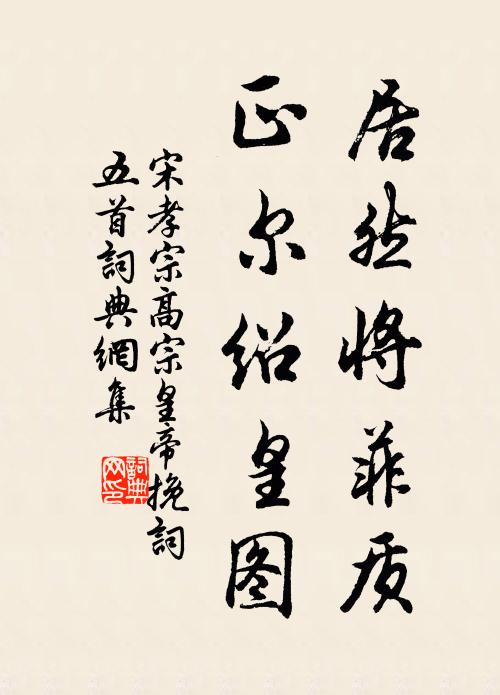 居然将菲质
正尔绍皇图
宋孝宗高宗皇帝挽詞
五首詞典網集
詞典
网印